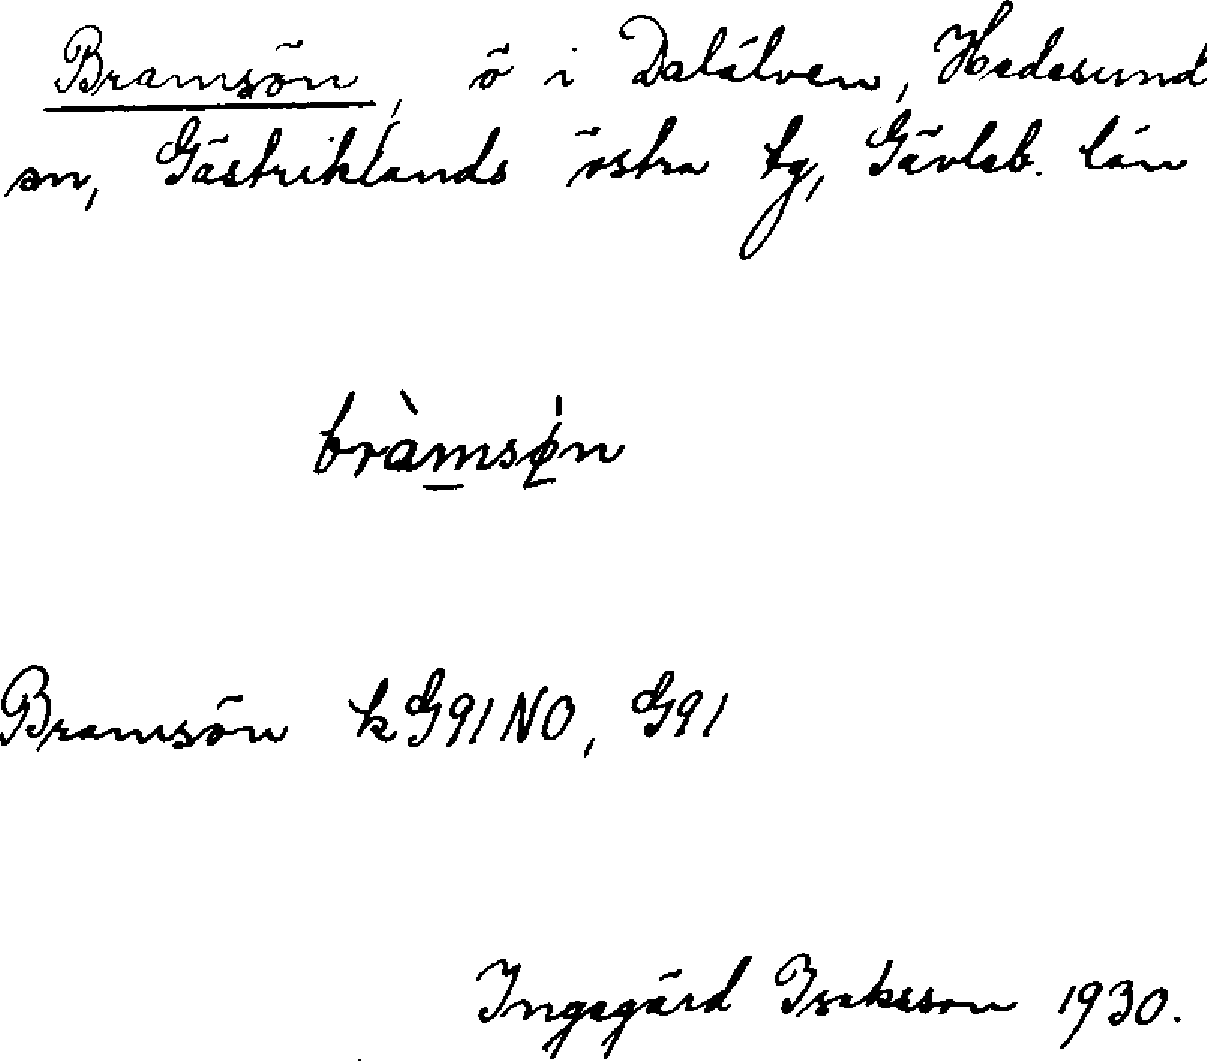 Bramsön, ö i Dalälven, Hedesund
sn, Gästriklands östra tg, Gävleb. län
bràmsø̀n
Bramsön kG91NO, G91
Ingegärd Isaksson 1930.